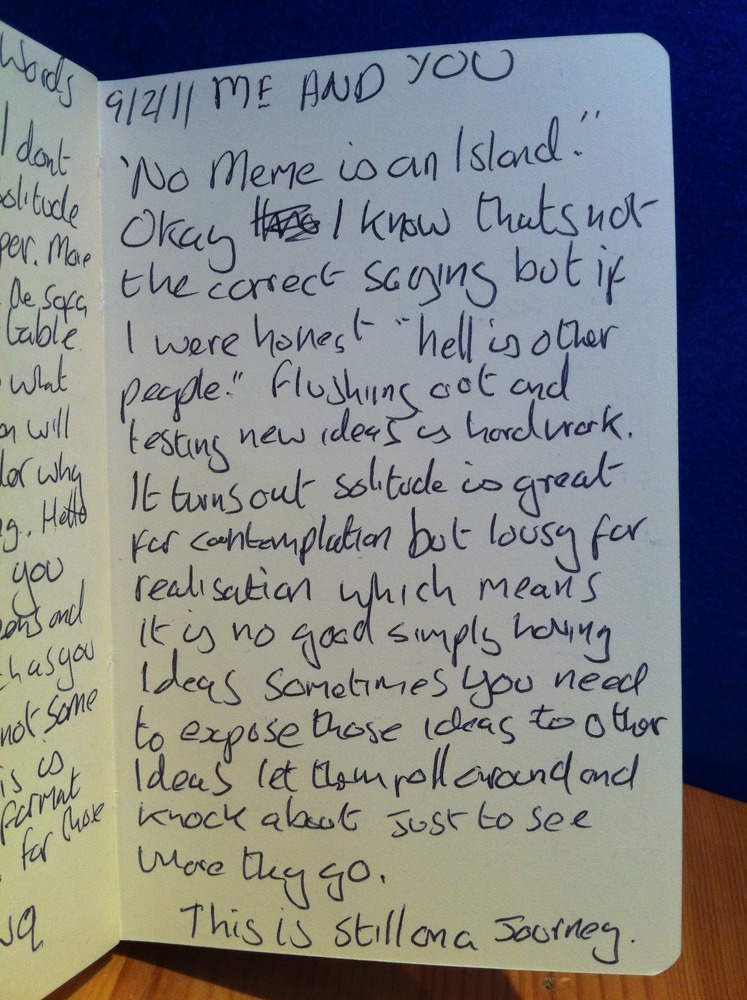 Words
I dont
solitude
per. More
De Sofa
table
what
on will
lor why
g. Hello
you
sons and
h as you
not some
is is
format
for those
9/2/11 ME AND YOU
'No Meme is an Island."
Okay I know thats not
the correct saying but if
I were honest "hell is other
people." flushing out and
testing new ideas is hardwork.
It turns out solitude is great
for contemplation but lousy for
realisation which means
it is no good simply having
Ideas sometimes you need
to expose those ideas to other
Ideas let them roll around and
knock about just to see
where they go.
This is still on a Journey.